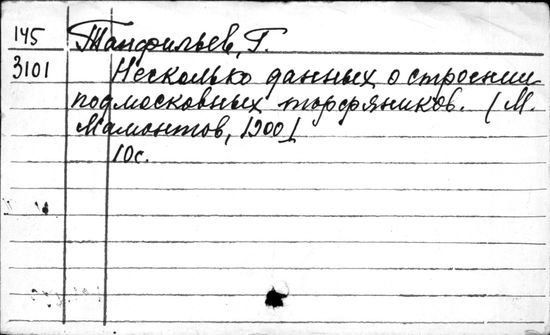 145 Танфильев, Г.
3101 Несколько данных о строении
подмосковных торфяников. (М.
Мамонтов, 1900)
10с.